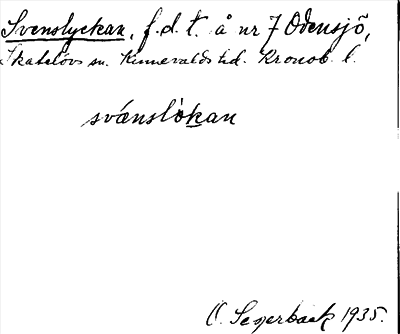 Svenslyckan, f.d.t. å nr 7 Odensjö,
Skatelövs sn. Kinnevalds hd. Kronob. l.
svænslokan
O. Segerback 1935.